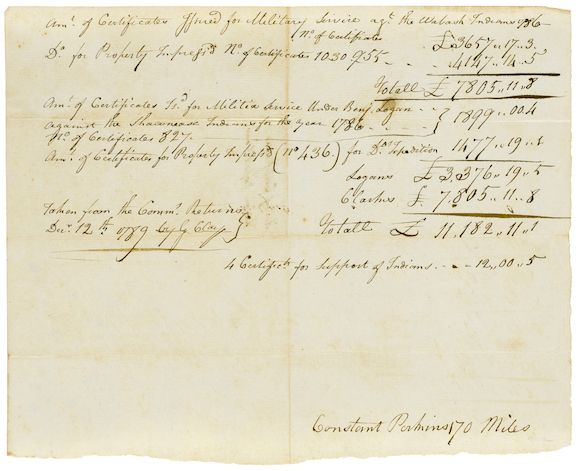 Amt. of Certificates Issued for Military Service agt. the Wabash Indians 1786
No. of Certificates £ 3657,,17,,3
Do. for Property Impress'd No. of Certificates 1030 955 - - 4147,,14,,5
Totall £ 7805,,11,,8
Amt. of Certificates Isd. for Militia Service Under Benj. Logan - -
against the Shawnease Indians for the year 1786 - - } 1899,,00,,4
No. of Certificates 827
Amt. of Certificates for Property Impress'd (No 436.) for Do. Expedition 1477,,19,,1
Logans £ 3,376,,19,,5
Clarkes £ 7,805,,11,,8
Taken from the Commrs. Returns
Decr. 12th 1789 by G Clay
Totall £ 11,182,,11,,1
4 Certificts. for Support of Indians - - - 12,,00,,5
Constant Perkins 170 Miles